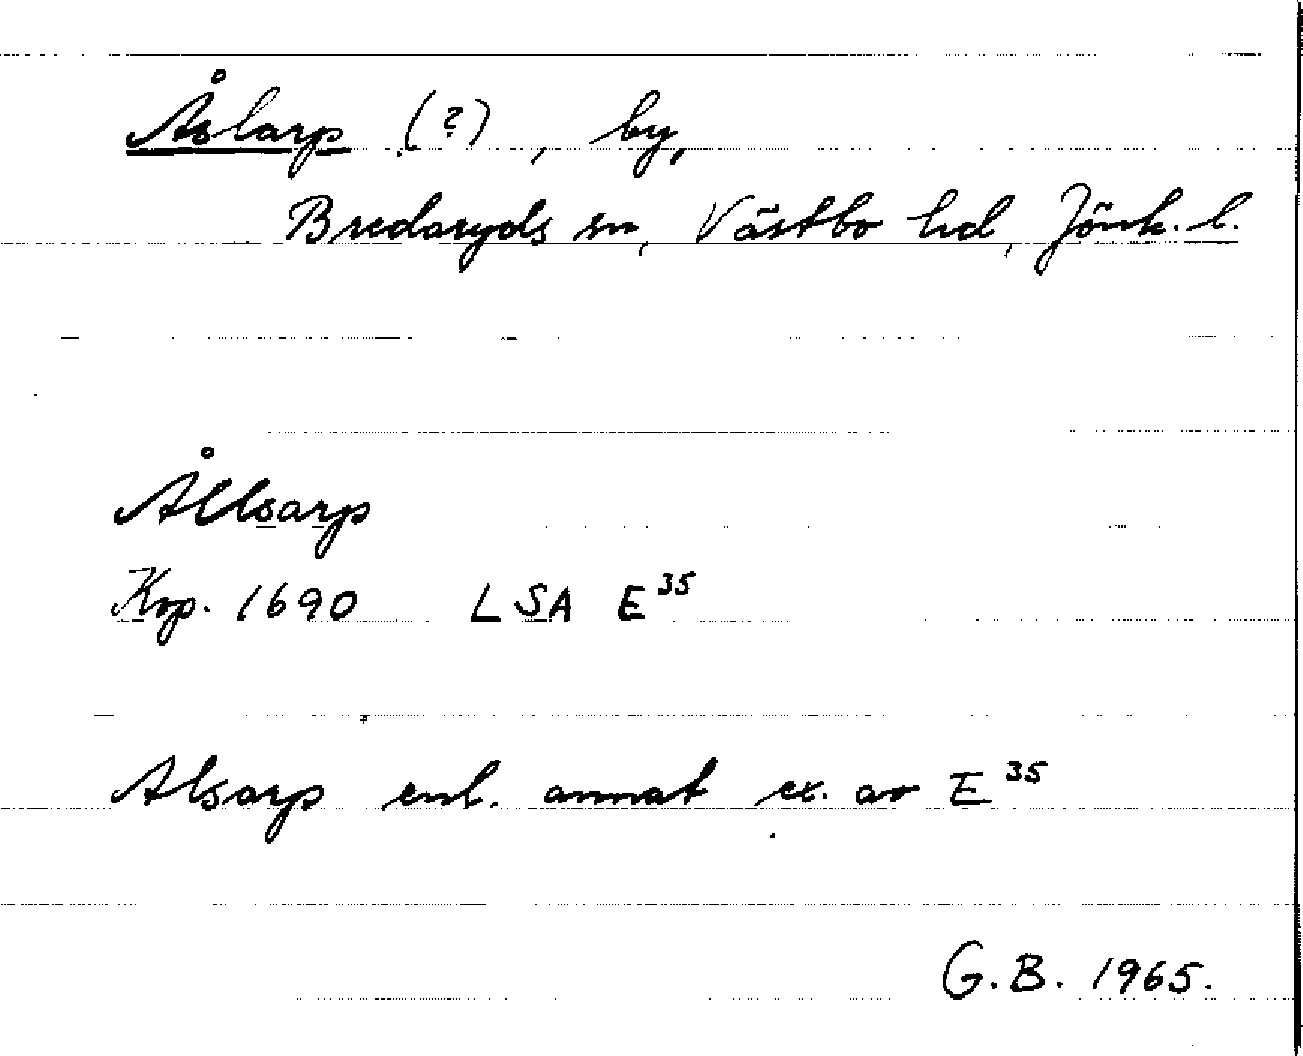 Åslarp (?), by,
Bredaryds sn, Västbo hd, Jönk. l.
Ållsarp
Kop. 1690 LSA E³⁵
Alsarp enl. annat ex. av E³⁵
G.B. 1965.